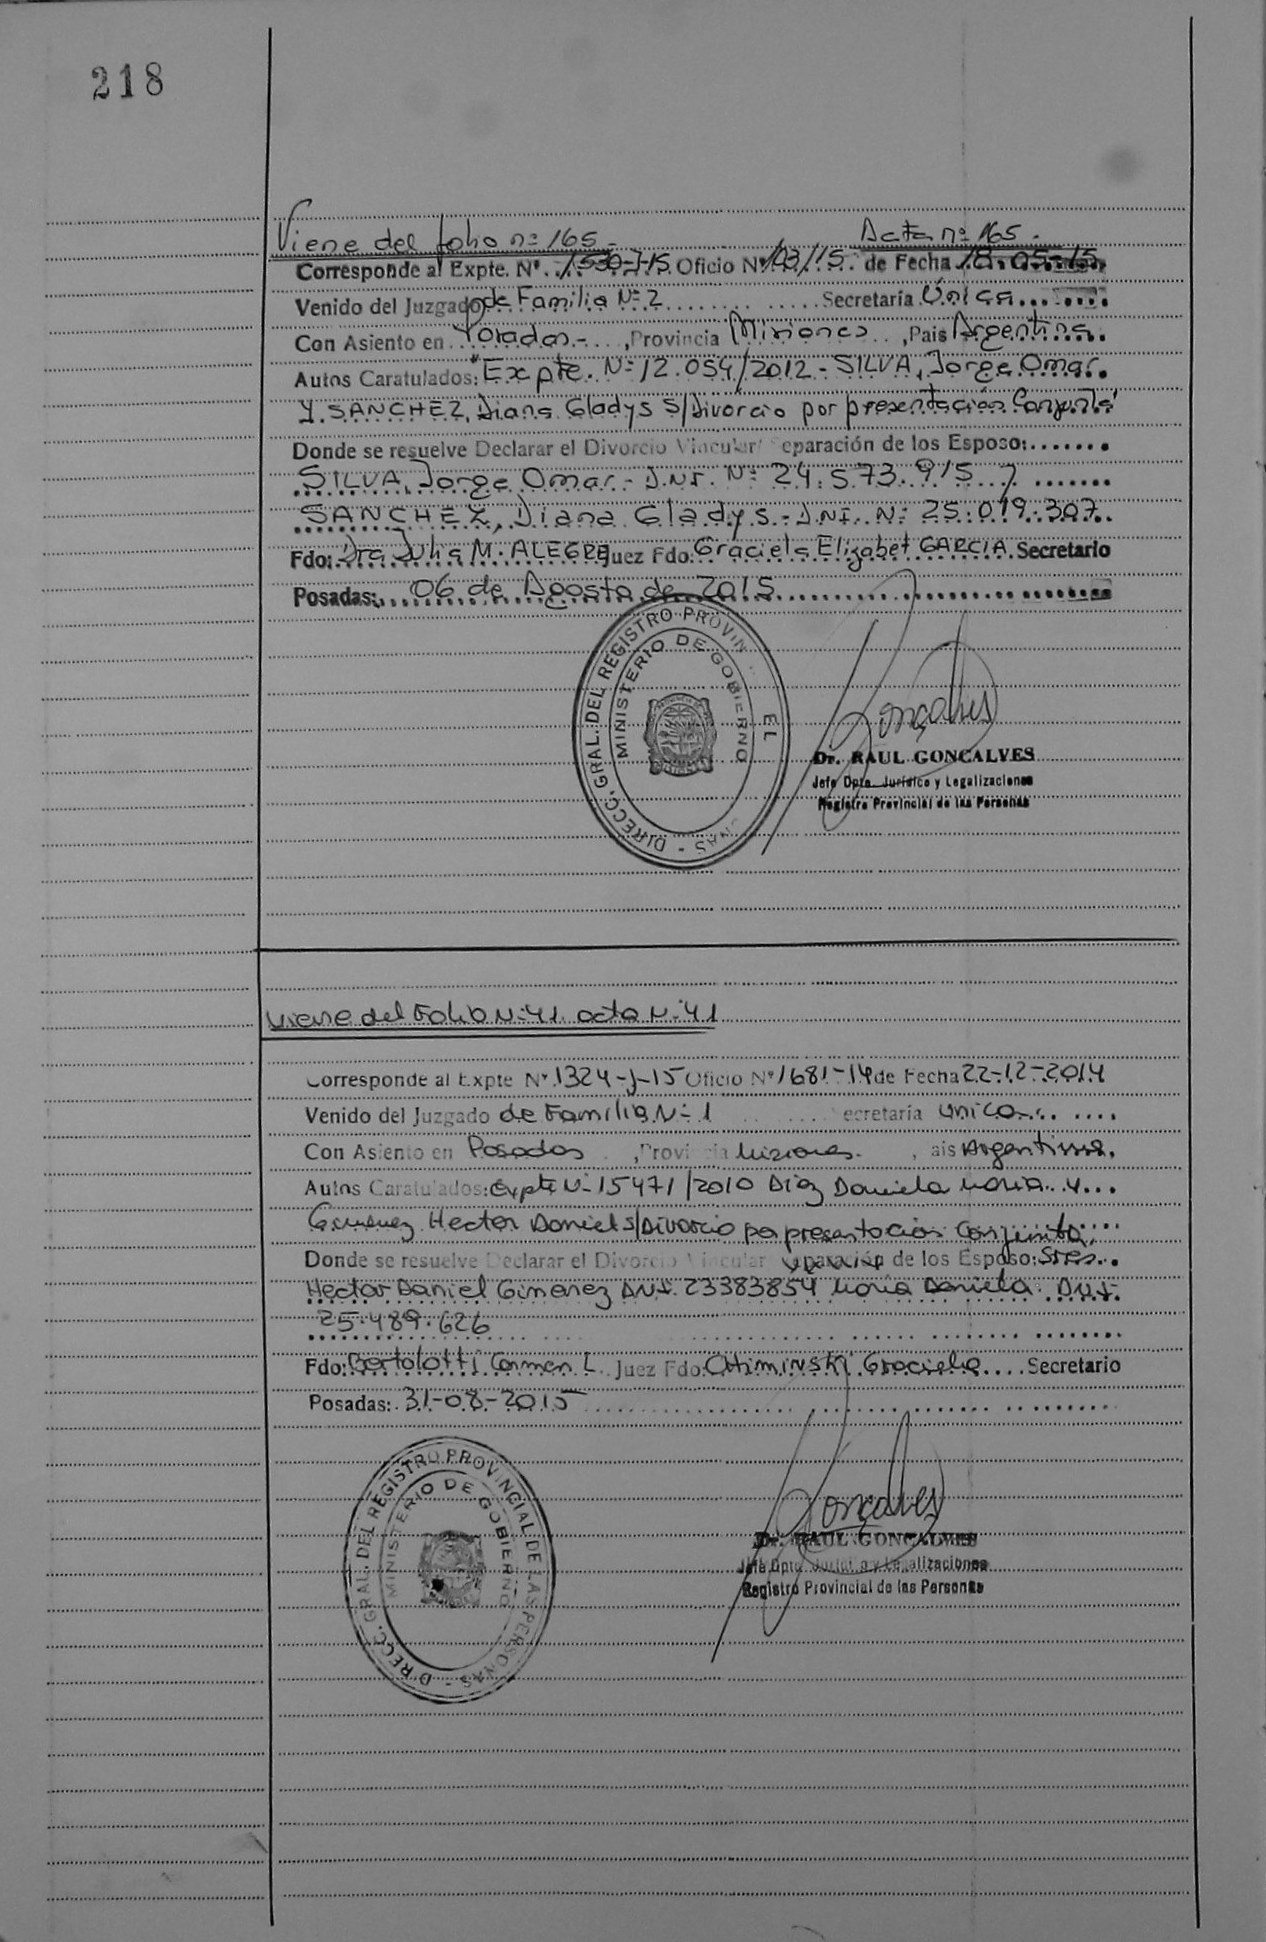 218
Viene del folio nº 165.-
Acta nº 165.-
Corresponde al Expte. Nº. 1530-J-15 Oficio Nº 193/15. de Fecha 18.05-15
Venido del Juzgado de Familia Nº 2 Secretaría Única
Con Asiento en Posadas.- ,Provincia Misiones ,Pais Argentina.
Autos Caratulados: "Expte. Nº 12.054/2012 - SILVA, Jorge Omar.
Y. SANCHEZ, Diana Gladys S/Divorcio por presentación Conjunta"
Donde se resuelve Declarar el Divorcio Vincular Separación de los Esposo:
SILVA, Jorge Omar - D.N.I. Nº 24.573.915 y
SANCHEZ, Diana Gladys - D.N.I. Nº 25.019.307.
Fdo: Dra Julia M. ALEGRE Juez Fdo. Graciela Elizabet GARCIA. Secretario
Posadas: 06 de Agosto de 2015
DIRECC. GRAL. DEL REGISTRO PROVIN EL
MINISTERIO DE GOBIERNO
Gonçalves
Dr. RAUL GONCALVES
Jefe Dpto. Jurídico y Legalizaciones
Registro Provincial de las Personas
Viene del Folio Nº 41 acta Nº 41
Corresponde al Expte Nº 1324-J-15 Oficio Nº 1681-14 de Fecha 22-12-2014
Venido del Juzgado de Familia Nº 1 ecretaría unica
Con Asiento en Posadas ,Provincia Misiones. , ais Argentina.
Autos Caratulados: Expte Nº 15471/2010 Diaz Daniela Maria y
Gimenez Hector Daniel s/Divorcio por presentacion Conjunta.
Donde se resuelve Declarar el Divorcio Vincular eparación de los Esposo: Sres.
Hector Daniel Gimenez DNI. 23383854 Maria Daniela DNI
25.489.626
Fdo: Bertolotti Carmen L. Juez Fdo: Graciela Secretario
Posadas: 31-08-2015
DIRECC. GRAL. DEL REGISTRO PROVINCIAL DE LAS PERSONAS -
MINISTERIO DE GOBIERNO
Gonçalves
Dr. RAUL GONCALVES
Jefe Dpto. Jurídico y Legalizaciones
Registro Provincial de las Personas